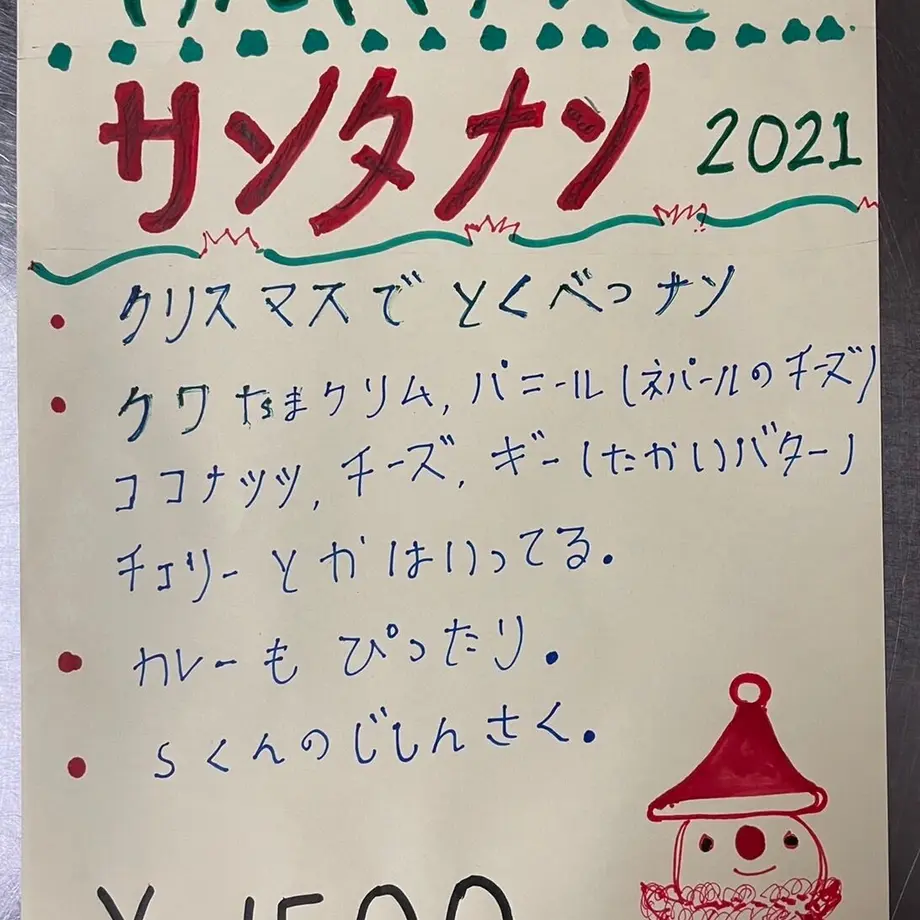 サンタナン 2021
クリスマスで とくべつ ナン
クワ なまクリム, パニール (ネパールの チーズ)
ココナッツ, チーズ, ギー (たかい) バター)
チェリー とか はいってる。
カレーも ぴったり。
Sくんのじしんさく。
¥ 1500